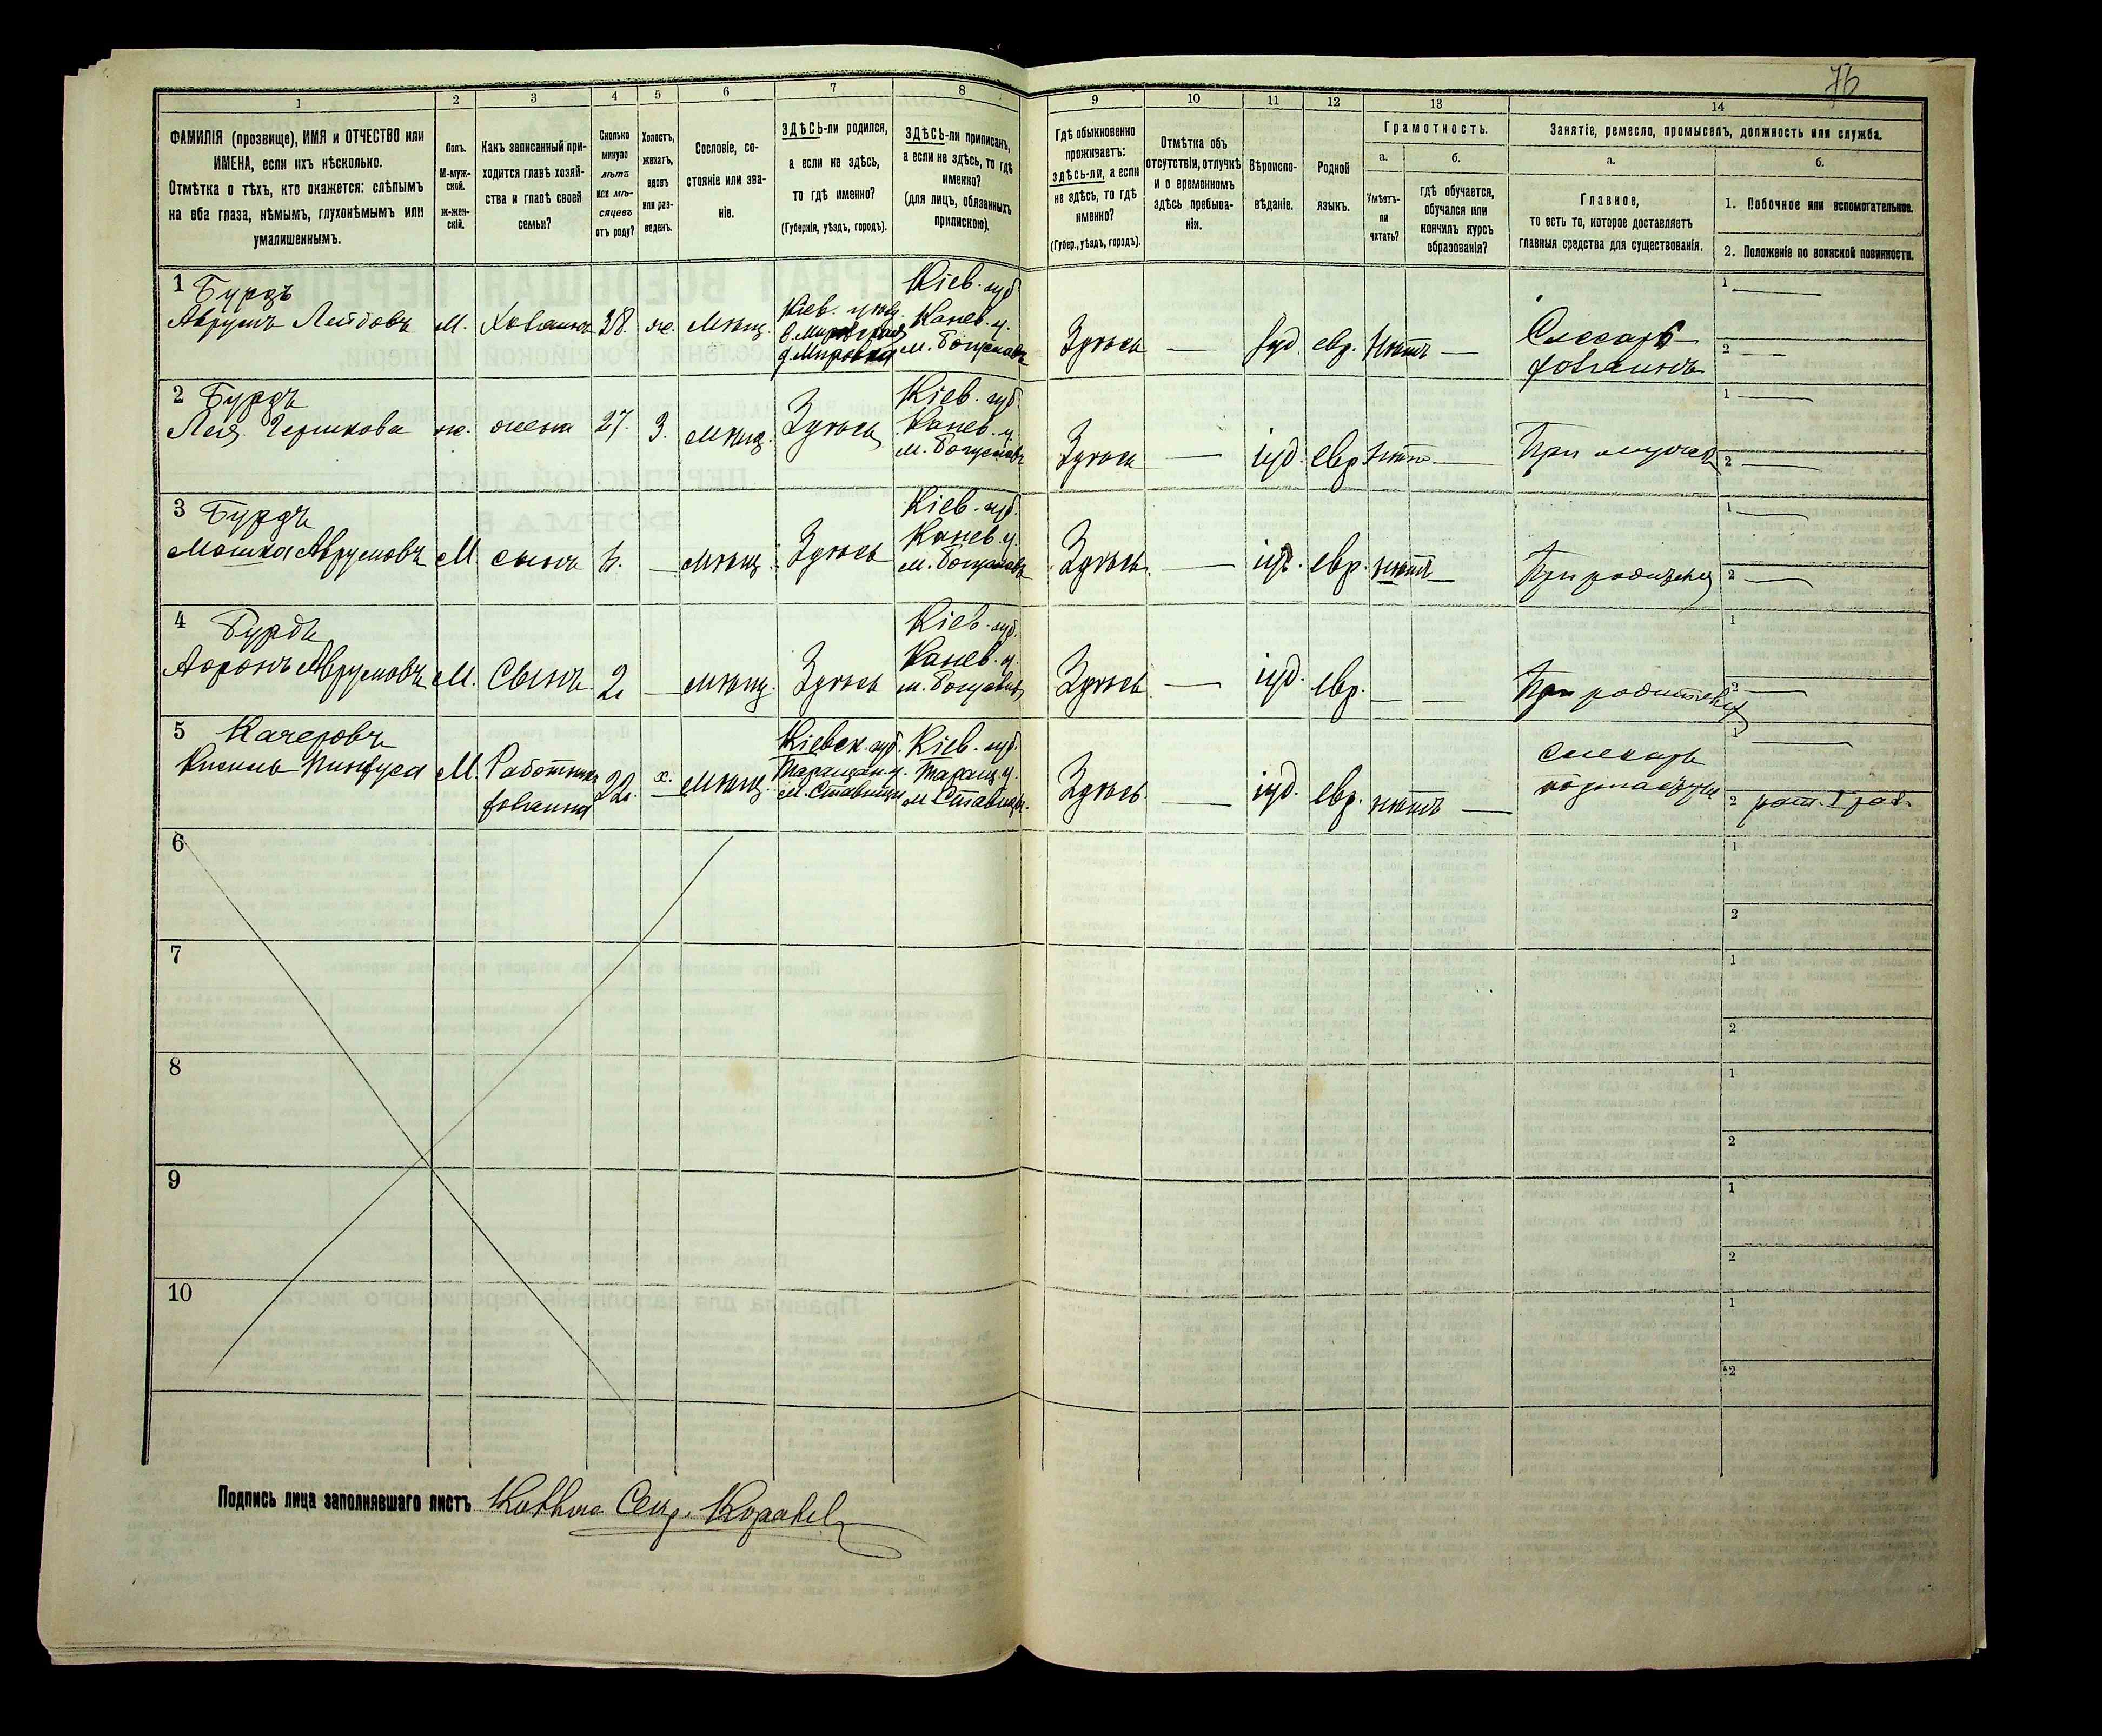 76
1 2 3 4 5 6 7 8 9 10 11 12 13 14
ФАМИЛІЯ (прозвище), ИМЯ и ОТЧЕСТВО или
ИМЕНА, если ихъ нѣсколько.
Отмѣтка о тѣхъ, кто окажется: слѣпымъ
на оба глаза, нѣмымъ, глухонѣмымъ или
умалишеннымъ.
Полъ.
М-муж-
ской.
Ж-жен-
скій.
Какъ записанный при-
ходится главѣ хозяй-
ства и главѣ своей
семьи?
Сколько
минуло
лѣтъ
или мѣ-
сяцевъ
отъ роду?
Холостъ,
женатъ,
вдовъ
или раз-
веденъ.
Сословіе, со-
стояніе или зва-
ніе.
ЗДѢСЬ-ли родился,
а если не здѣсь,
то гдѣ именно?
(Губернія, уѣздъ, городъ).
ЗДѢСЬ-ли приписанъ,
а если не здѣсь, то гдѣ
именно?
(для лицъ, обязанныхъ
припискою).
Гдѣ обыкновенно
проживаетъ:
здѣсь-ли, а если
не здѣсь, то гдѣ
именно?
(Губер., уѣздъ, городъ).
Отмѣтка объ
отсутствіи, отлучкѣ
и о временномъ
здѣсь пребыва-
ніи.
Вѣроиспо-
вѣданіе.
Родной
языкъ.
Грамотность.
а.
Умѣетъ-
ли
читать?
б.
гдѣ обучается,
обучался или
кончилъ курсъ
образованія?
Занятіе, ремесло, промыселъ, должность или служба.
а.
Главное,
то есть то, которое доставляетъ
главныя средства для существованія.
б.
1. Побочное или вспомогательное.
2. Положеніе по воинской повинности.
1 Бурдъ
Аврумъ Лейбовъ М. Хозяинъ 38. ж. мѣщ.
Кіев. губ.
Канев. у.
м. Богуславъ
Здѣсь — іуд. евр. нѣтъ —
Слесарь
хозяинъ
1 —
2 —
2 Бурдъ
Лея Гершкова ж. жена 27. З. мѣщ. Здѣсь
Кіев. губ.
Канев. у.
м. Богуславъ
Здѣсь — іуд. евр нѣтъ —
При мужѣ
1 —
2 —
3 Бурдъ
Мошка Аврумовъ М. сынъ — мѣщ. Здѣсь
Кіев. губ.
Канев. у.
м. Богуславъ
Здѣсь — іуд. евр. нѣтъ —
При родителя
1 —
2 —
4 Бурдъ
Ааронъ Аврумовъ М. Сынъ 2 — мѣщ. Здѣсь
Кіев. губ.
Канев. у.
м. Богуславъ
Здѣсь — іуд. евр. — —
При родителяхъ
1
2 —
5 Качеровъ
Кисиль Пинхуса М. Работникъ
хозяина 22. х. мѣщ.
Кіевск. губ.
Таращан. у.
м. Ставищи
Кіев. губ.
Таращ. у.
м Ставищ.
Здѣсь — іуд. евр. нѣтъ —
слесарь
подмастерье
1 —
2 рат. I раз.
6
1
2
7
1
2
8
1
2
9
1
2
10
1
2
Подпись лица заполнявшаго листъ